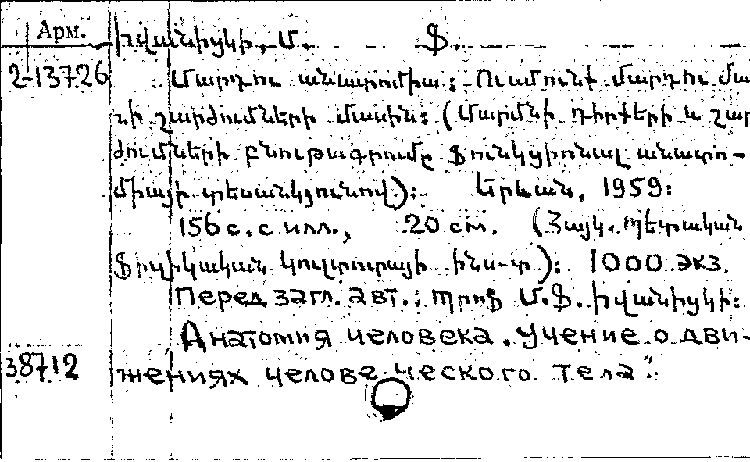 Арм.
Իվանիցկի, Մ. Ֆ.
2-13726
Մարդու անատոմիա: Ուսմունք մարդու մա
նի շարժումների մասին: (Մարմնի դիրքերի և շար
ժումների բնութագրումը ֆունկցիոնալ անատո-
միայի տեսանկյունով): Երևան, 1959:
156 с. с илл., 20 см. (Հայկ. պետական
ֆիզիկական կուլտուրայի ինս-տ): 1000 экз.
Перед загл. авт.: պրոֆ Մ. Ֆ. Իվանիցկի:
Анатомия человека. Учение о дви-
38712
жениях человеческого тела.